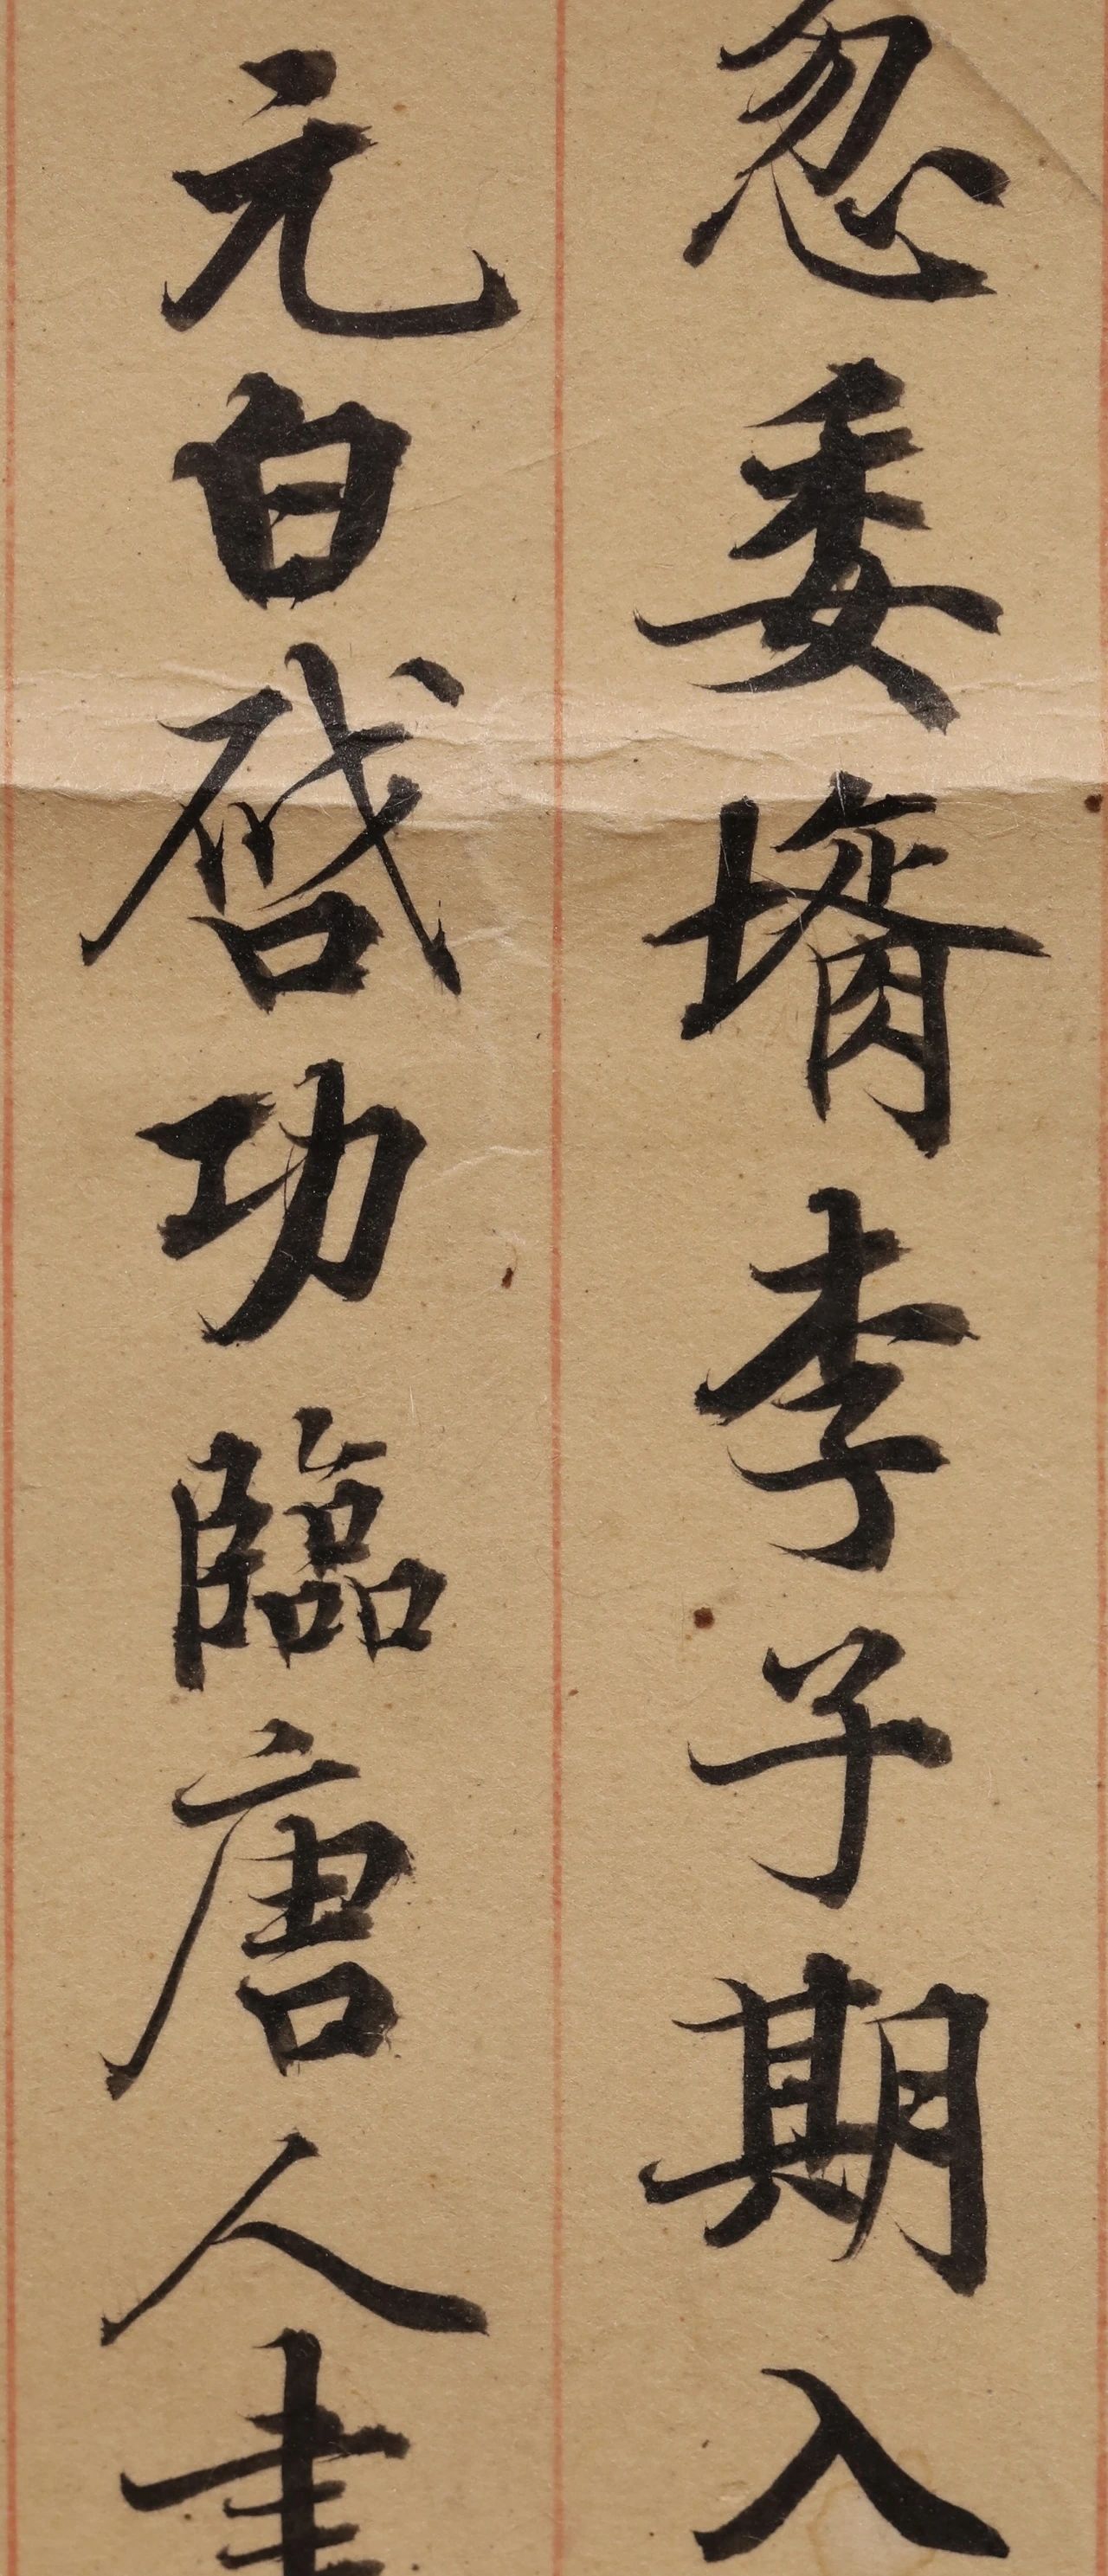 忽委壻李子期入
元白啓功臨唐人書